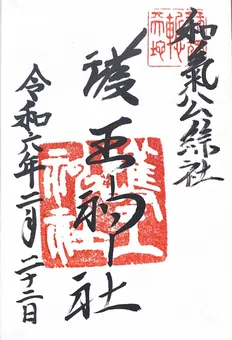 和氣公綜社
護王神社
令和六年二月二十二日
護王神社